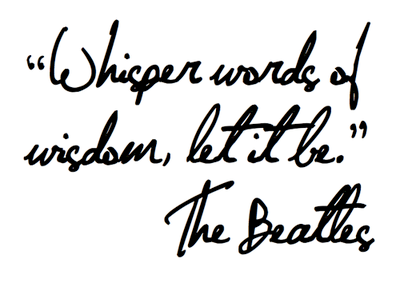 “Whisper words of
wisdom, let it be.”
The Beatles